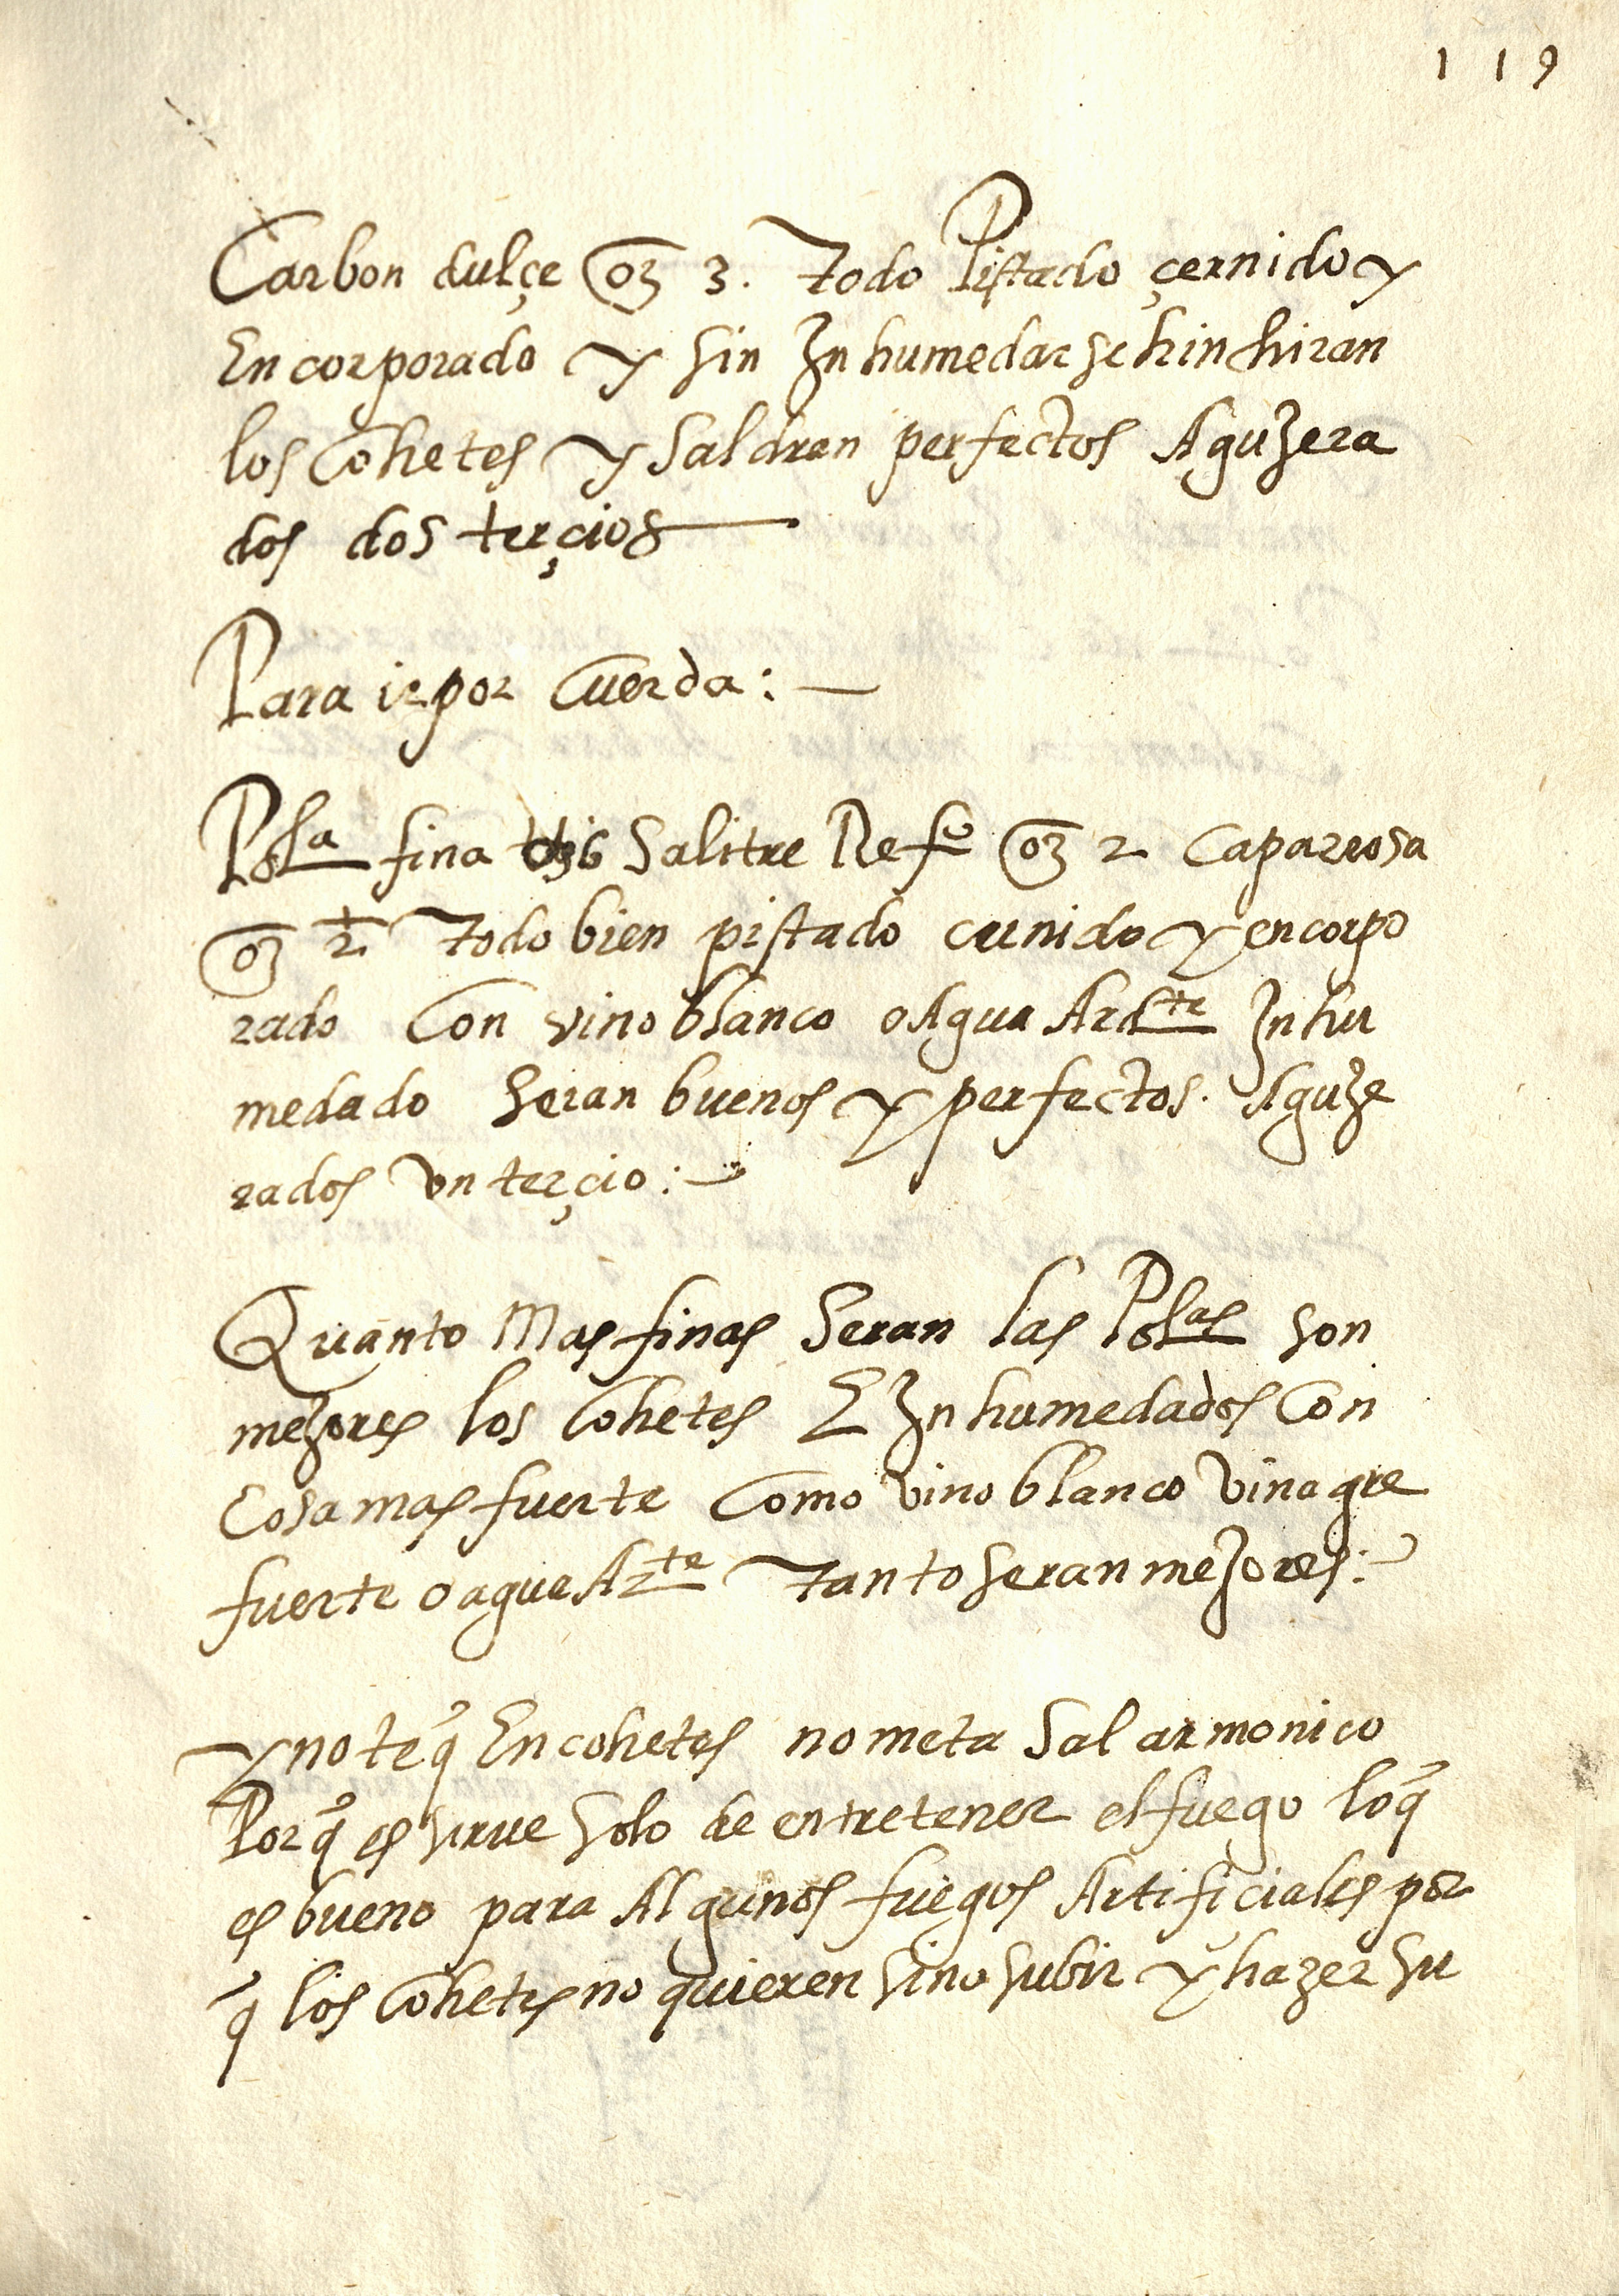 119
Carbon dulçe oz 3. Todo Pistado çernido y
Encorporado y sin Inhumedar se hinchiran
los Cohetes y Saldran perfectos Aguzera
dos dos terçios
Para ir por Cuerda:
Pol.ª fina Salitre Ref.º oz 2 Caparrosa
oz ½ Todo bien pistado cernido y encorpo
rado Con vino blanco o Agua Ard.te Inhu
medado Seran buenos y perfectos. Aguze
rados vn terçio:
Quanto Mas finas Seran las Pol.as son
mejores los Cohetes E Inhumedados Con
Cosa mas fuerte Como vino blanco Vinagre
fuerte o agua Ar.te Tanto Seran mejores:
y note q̃ En cohetes no meta Sal armonico
Porq̃ es sirue Solo de entretener el fuego loq̃
es bueno para Algunos fuegos Artificiales por
q̃ los Cohetes no quieren sino subir y hazer su